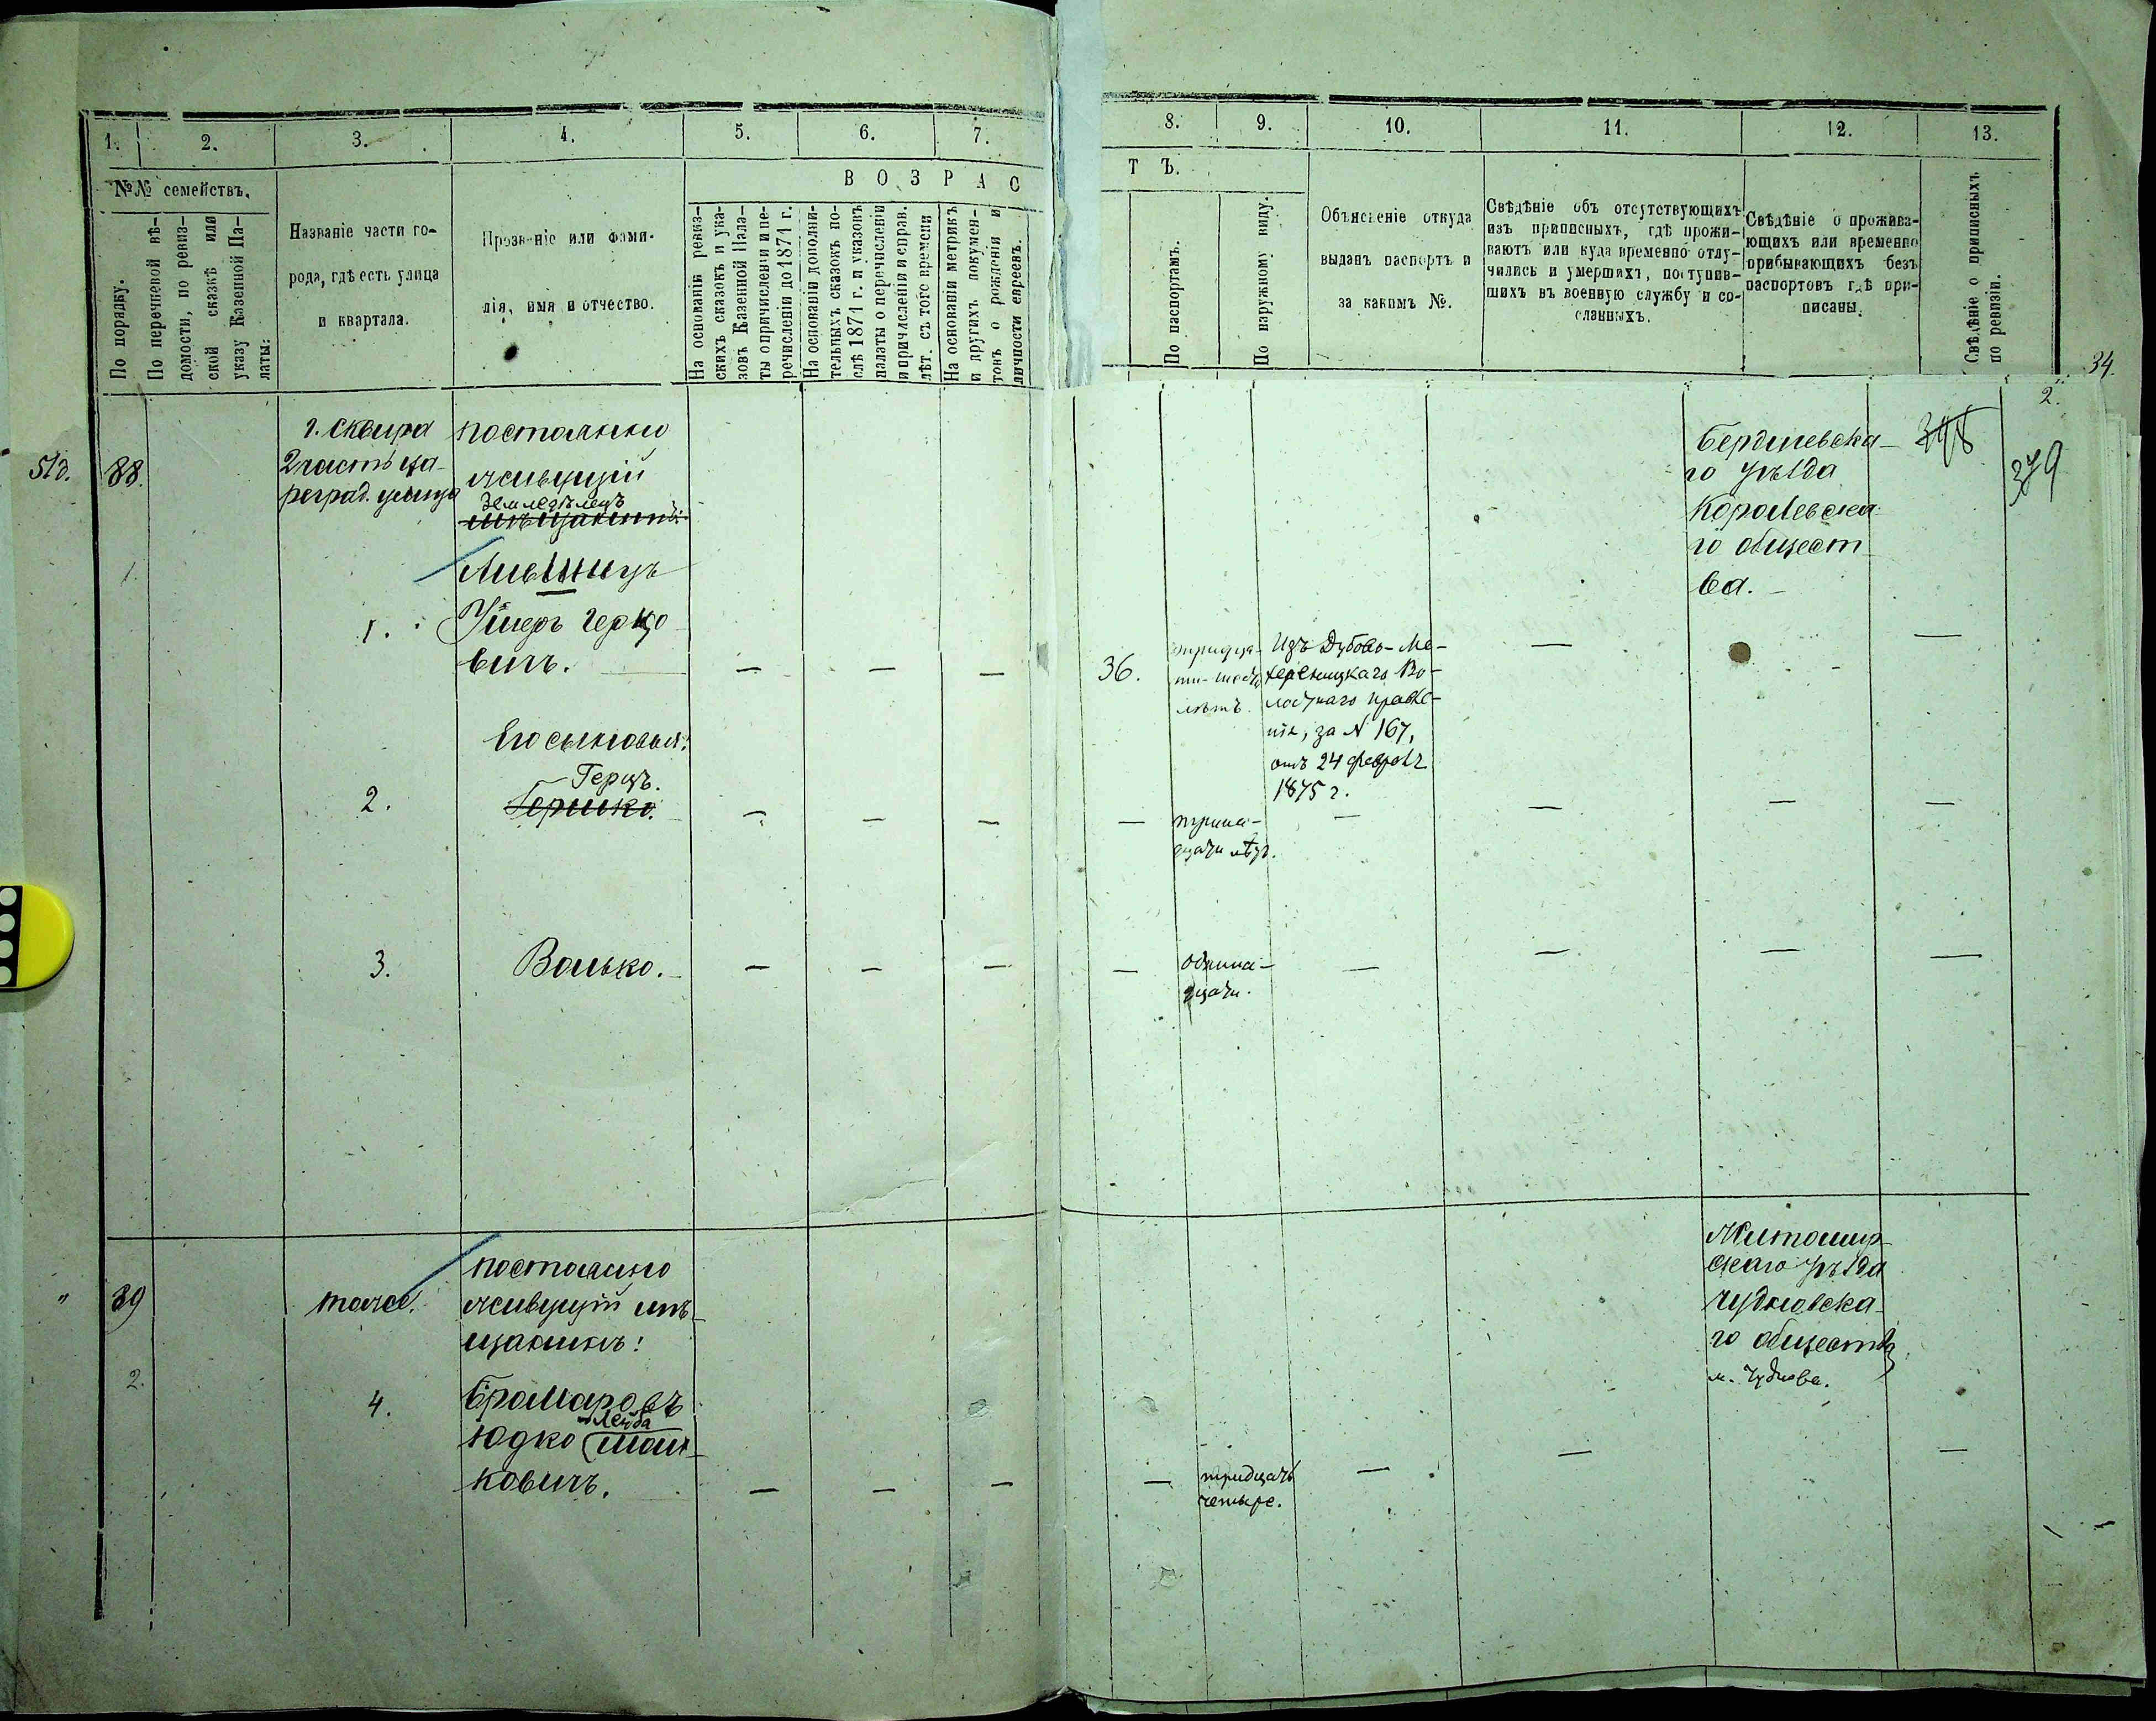 1.
2.
3.
4.
5.
6.
7.
8.
9.
10.
11.
12.
13.
№№ семействъ.
По порядку.
По перечневой вѣ-
домости, по ревиз-
ской сказкѣ или
указу Казенной Па-
латы:
Названіе части го-
рода, гдѣ есть улица
и квартала.
Прозваніе или фами-
лія, имя и отчество.
ВОЗРАС
На основаніи ревиз-
скихъ сказокъ и ука-
зовъ Казенной Пала-
ты о причисленіи и пе-
речисленіи до 1871 г.
На основаніи дополни-
тельныхъ сказокъ по-
слѣ 1871 г. и указовъ
палаты о перечисленіи
и причисленіи и справ.
лѣт. съ того времени
На основаніи метрикъ
и другихъ докумен-
товъ о рожденіи и
личности евреевъ.
ТЪ.
По паспортамъ.
По наружному виду.
Объясненіе откуда
выданъ паспортъ и
за какимъ №.
Свѣдѣніе объ отсутствующихъ
изъ приписныхъ, гдѣ прожи-
ваютъ или куда временно отлу-
чились и умершихъ, поступив-
шихъ въ военную службу и со-
сланныхъ.
Свѣдѣніе о прожива-
ющихъ или временно
прибывающихъ безъ
паспортовъ гдѣ при-
писаны.
Свѣдѣніе о приписныхъ
по ревизіи.
34.
2.
51д.
88.
г. Сквира
2 часть Ца-
реград. улица
постоянно
живущій
Земледѣлецъ
мѣщанинъ:
1.
Лившицъ
1.
Ушеръ Герцо
вичъ.
—
—
—
36.
тридца-
ти-шесть
лѣтъ.
Изъ Дубово-Ме-
жереницкаго Во-
лостнаго правле-
нія, за № 167,
отъ 24 февраля
1875 г.
—
Бердичевска-
го уѣзда
Королевска-
го общест
ва.
—
379
Его сыновья:
2.
Герцъ.
Гершко.
—
—
—
—
трина-
дцати лѣтъ.
—
—
—
—
3.
Волько.
—
—
—
—
одинна-
дцати.
—
—
—
—
"
89
2.
тоже.
постоянно
живущій мѣ-
щанинъ:
4.
Бромаровъ
Юдко-Лейба
Шая-
ковичъ.
—
—
—
—
тридцать
четыре.
—
—
Житомир-
скаго уѣзда
Чудновска-
го общества
м. Чуднова.
—